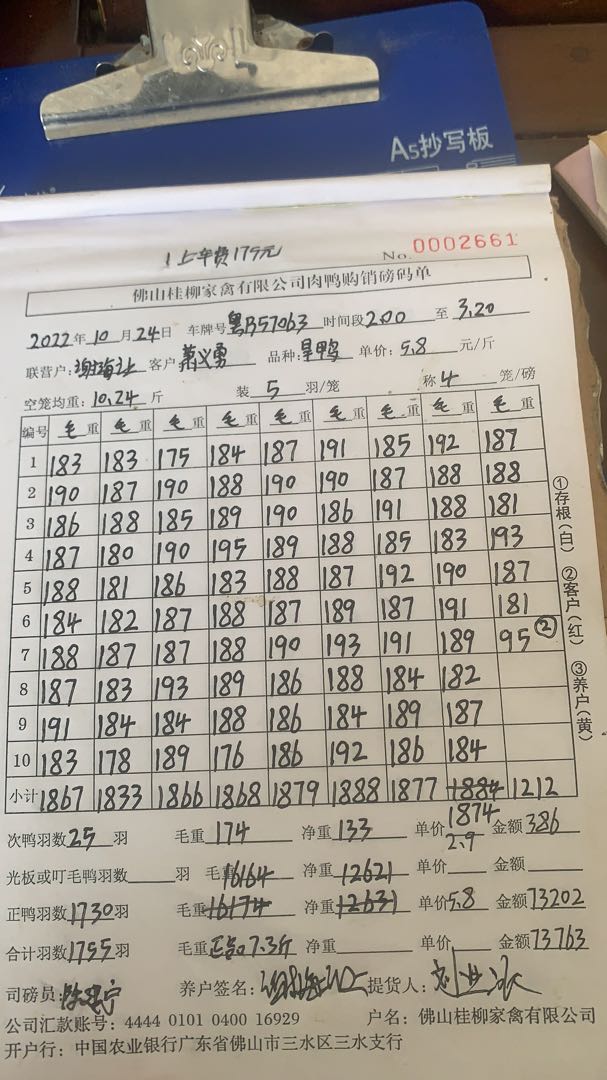 A5抄写板
1上车费175元
No. 0002661
佛山桂柳家禽有限公司肉鸭购销磅码单
2022年10月24日 车牌号粤B57063 时间段2.00 至 3.20
联营户: 客户 义勇 品种:旱鸭 单价:5.8 元/斤
空笼均重:10.24斤 装 5 羽/笼 称 4 笼/磅
编号 毛重 毛重 毛重 毛重 毛重 毛重 毛重 毛重 毛重
1 183 183 175 184 187 191 185 192 187
2 190 187 190 188 190 190 187 188 188
3 186 188 185 189 190 186 191 188 181
4 187 180 190 195 189 188 185 183 193
5 188 181 186 183 188 187 192 190 187
6 184 182 187 188 187 189 187 191 181
7 188 187 187 188 190 193 191 189 95②
8 187 183 193 189 186 188 184 182
9 191 184 184 188 186 184 189 187
10 183 178 189 176 186 192 186 184
小计 1867 1833 1866 1868 1879 1888 1877 1884 1212
1874
次鸭羽数25羽 毛重 174 净重 133 单价 2.9 金额 386
光板或叮毛鸭羽数 羽 毛重 16164 净重 12621 单价 金额
正鸭羽数1730羽 毛重16174 净重12631 单价5.8 金额73202
合计羽数1755羽 毛重 7.3斤 净重 单价 金额73763
司磅员: 养户签名: 提货人:
公司汇款账号: 4444 0101 0400 16929 户名: 佛山桂柳家禽有限公司
开户行: 中国农业银行广东省佛山市三水区三水支行
①存根(白) ②客户(红) ③养户(黄)